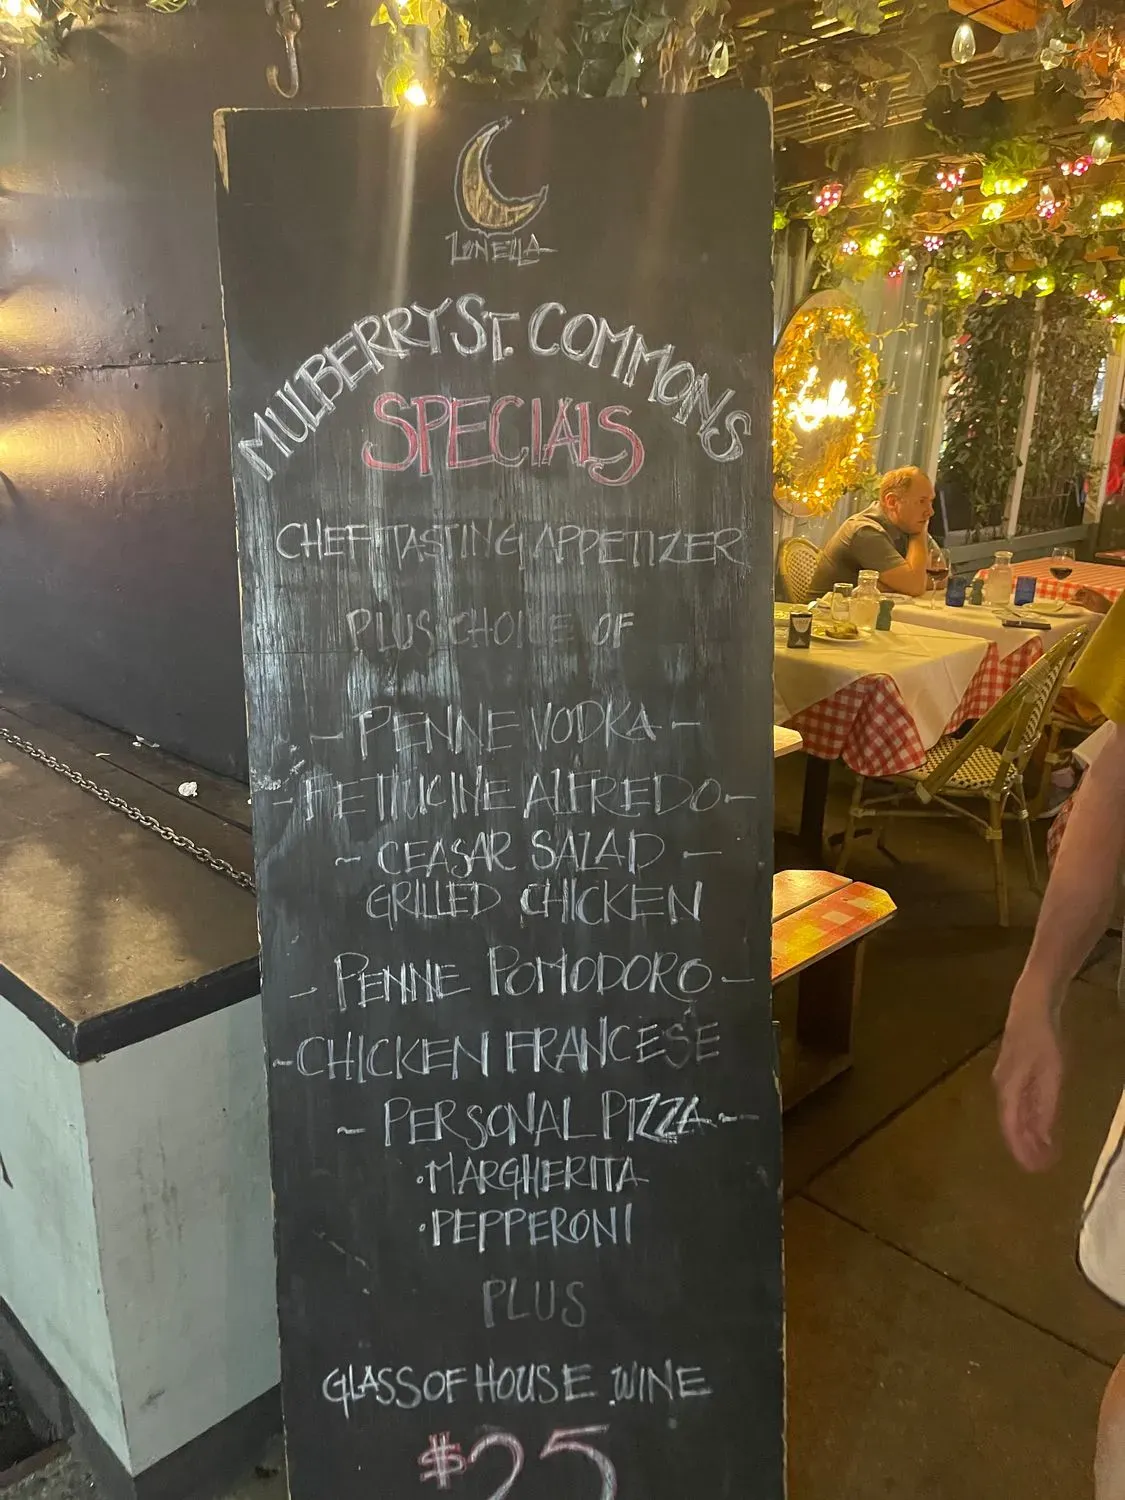 LUNELLA
MULBERRY ST. COMMONS
SPECIALS
CHEF TASTING APPETIZER
PLUS CHOICE OF
- PENNE VODKA -
- FETTUCINE ALFREDO -
~ CEASAR SALAD -
GRILLED CHICKEN
- PENNE POMODORO -
~ CHICKEN FRANCESE
~ PERSONAL PIZZA ~-
· MARGHERITA
· PEPPERONI
PLUS
GLASS OF HOUSE WINE
$25